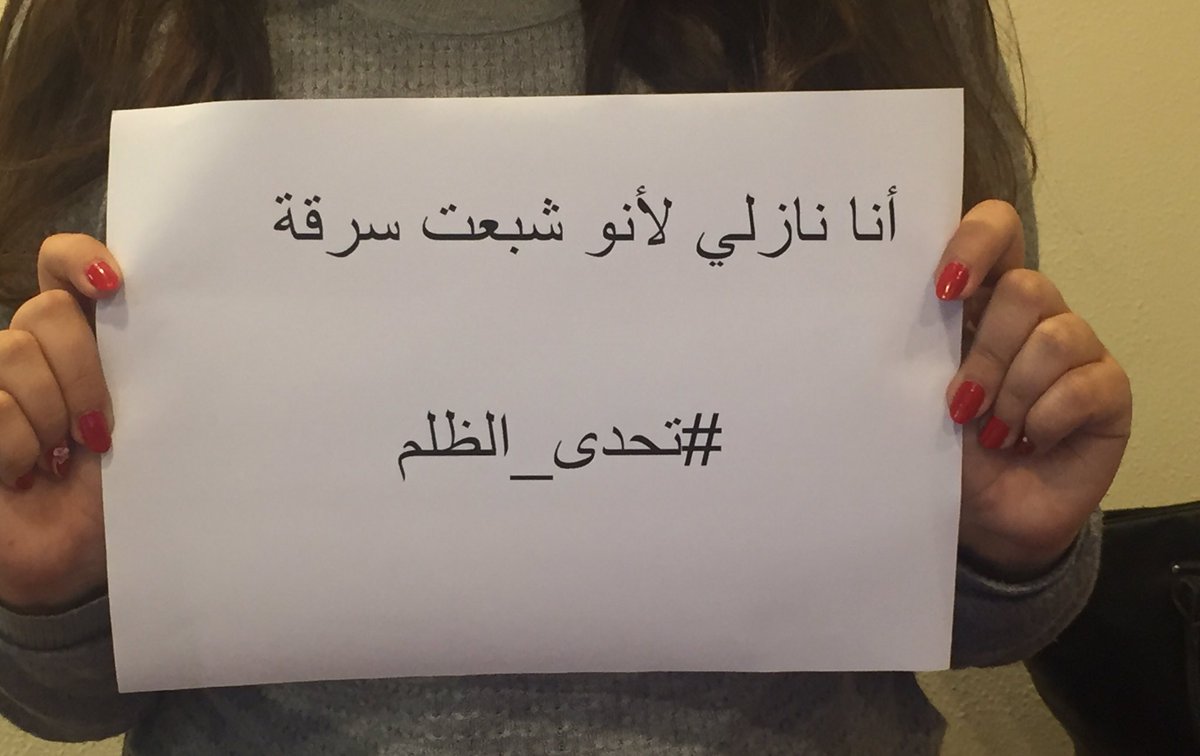 أنا نازلي لأنو شبعت سرقة
#تحدى_الظلم